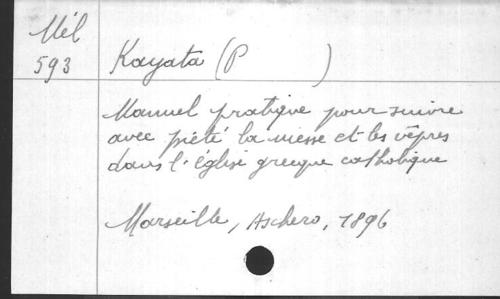 Mél
593
Kayata (P )
Manuel pratique pour suivre
avec piété la messe et les vêpres
dans l'église grecque catholique
Marseille, Aschero, 1896